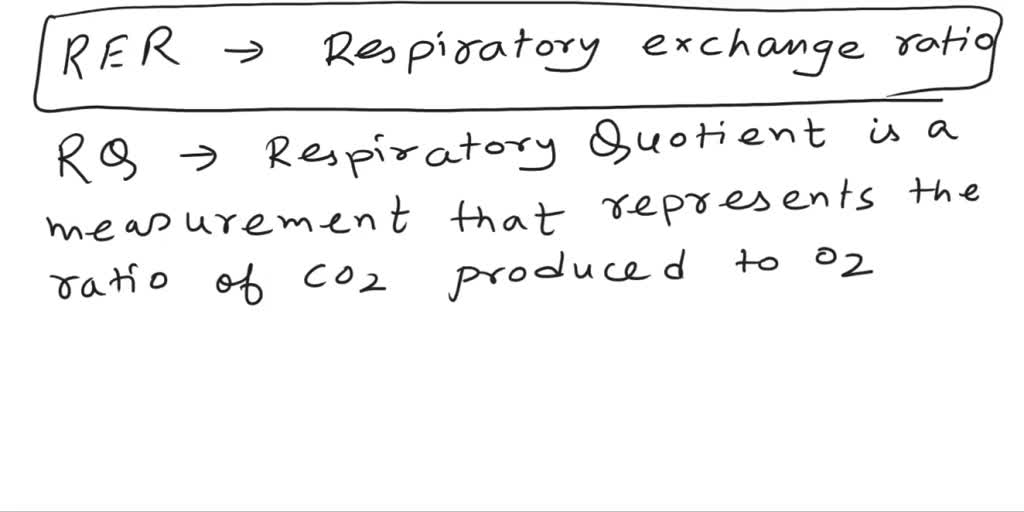 RER → Respiratory exchange ratio
RQ → Respiratory Quotient is a
measurement that represents the
ratio of CO2 produced to O2